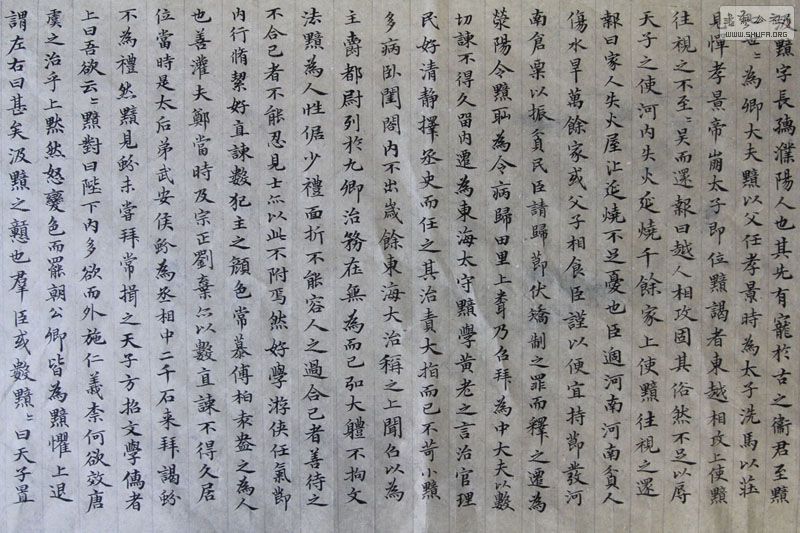 黯字長孺濮陽人也其先有寵於古之衛君至黯
〻為卿大夫黯以父任孝景時為太子洗馬以莊
見憚孝景帝崩太子即位黯謁者東越相攻上使黯
往視之不至〻吳而還報曰越人相攻固其俗然不足以辱
天子之使河內失火延燒千餘家上使黯往視之還
報曰家人失火屋比延燒不足憂也臣過河南河南貧人
傷水旱萬餘家或父子相食臣謹以便宜持節發河
南倉粟以振貧民臣請歸節伏矯制之罪而釋之遷為
滎陽令黯恥為令病歸田里上聞乃召拜為中大夫以數
切諫不得久留內遷為東海太守黯學黄老之言治官理
民好清静擇丞史而任之其治責大指而已不苛小黯
多病卧閨閤內不出歲餘東海大治稱之上聞召以為
主爵都尉列於九卿治務在無為而已弘大體不拘文
法黯為人性倨少禮面折不能容人之過合己者善待之
不合己者不能忍見士亦以此不附焉然好學游俠任氣節
內行脩絜好直諫數犯主之顔色常慕傅柏袁盎之為人
也善灌夫鄭當時及宗正劉棄亦以數直諫不得久居
位當時是太后弟武安侯蚡為丞相中二千石来拜謁蚡
不為禮然黯見蚡未嘗拜常揖之天子方招文學儒者
上曰吾欲云〻黯對曰陛下內多欲而外施仁義柰何欲效唐
虞之治乎上黙然怒變色而罷朝公卿皆為黯懼上退
謂左右曰甚矣汲黯之戇也羣臣或數黯〻曰天子置
WWW.SHUFA.ORG